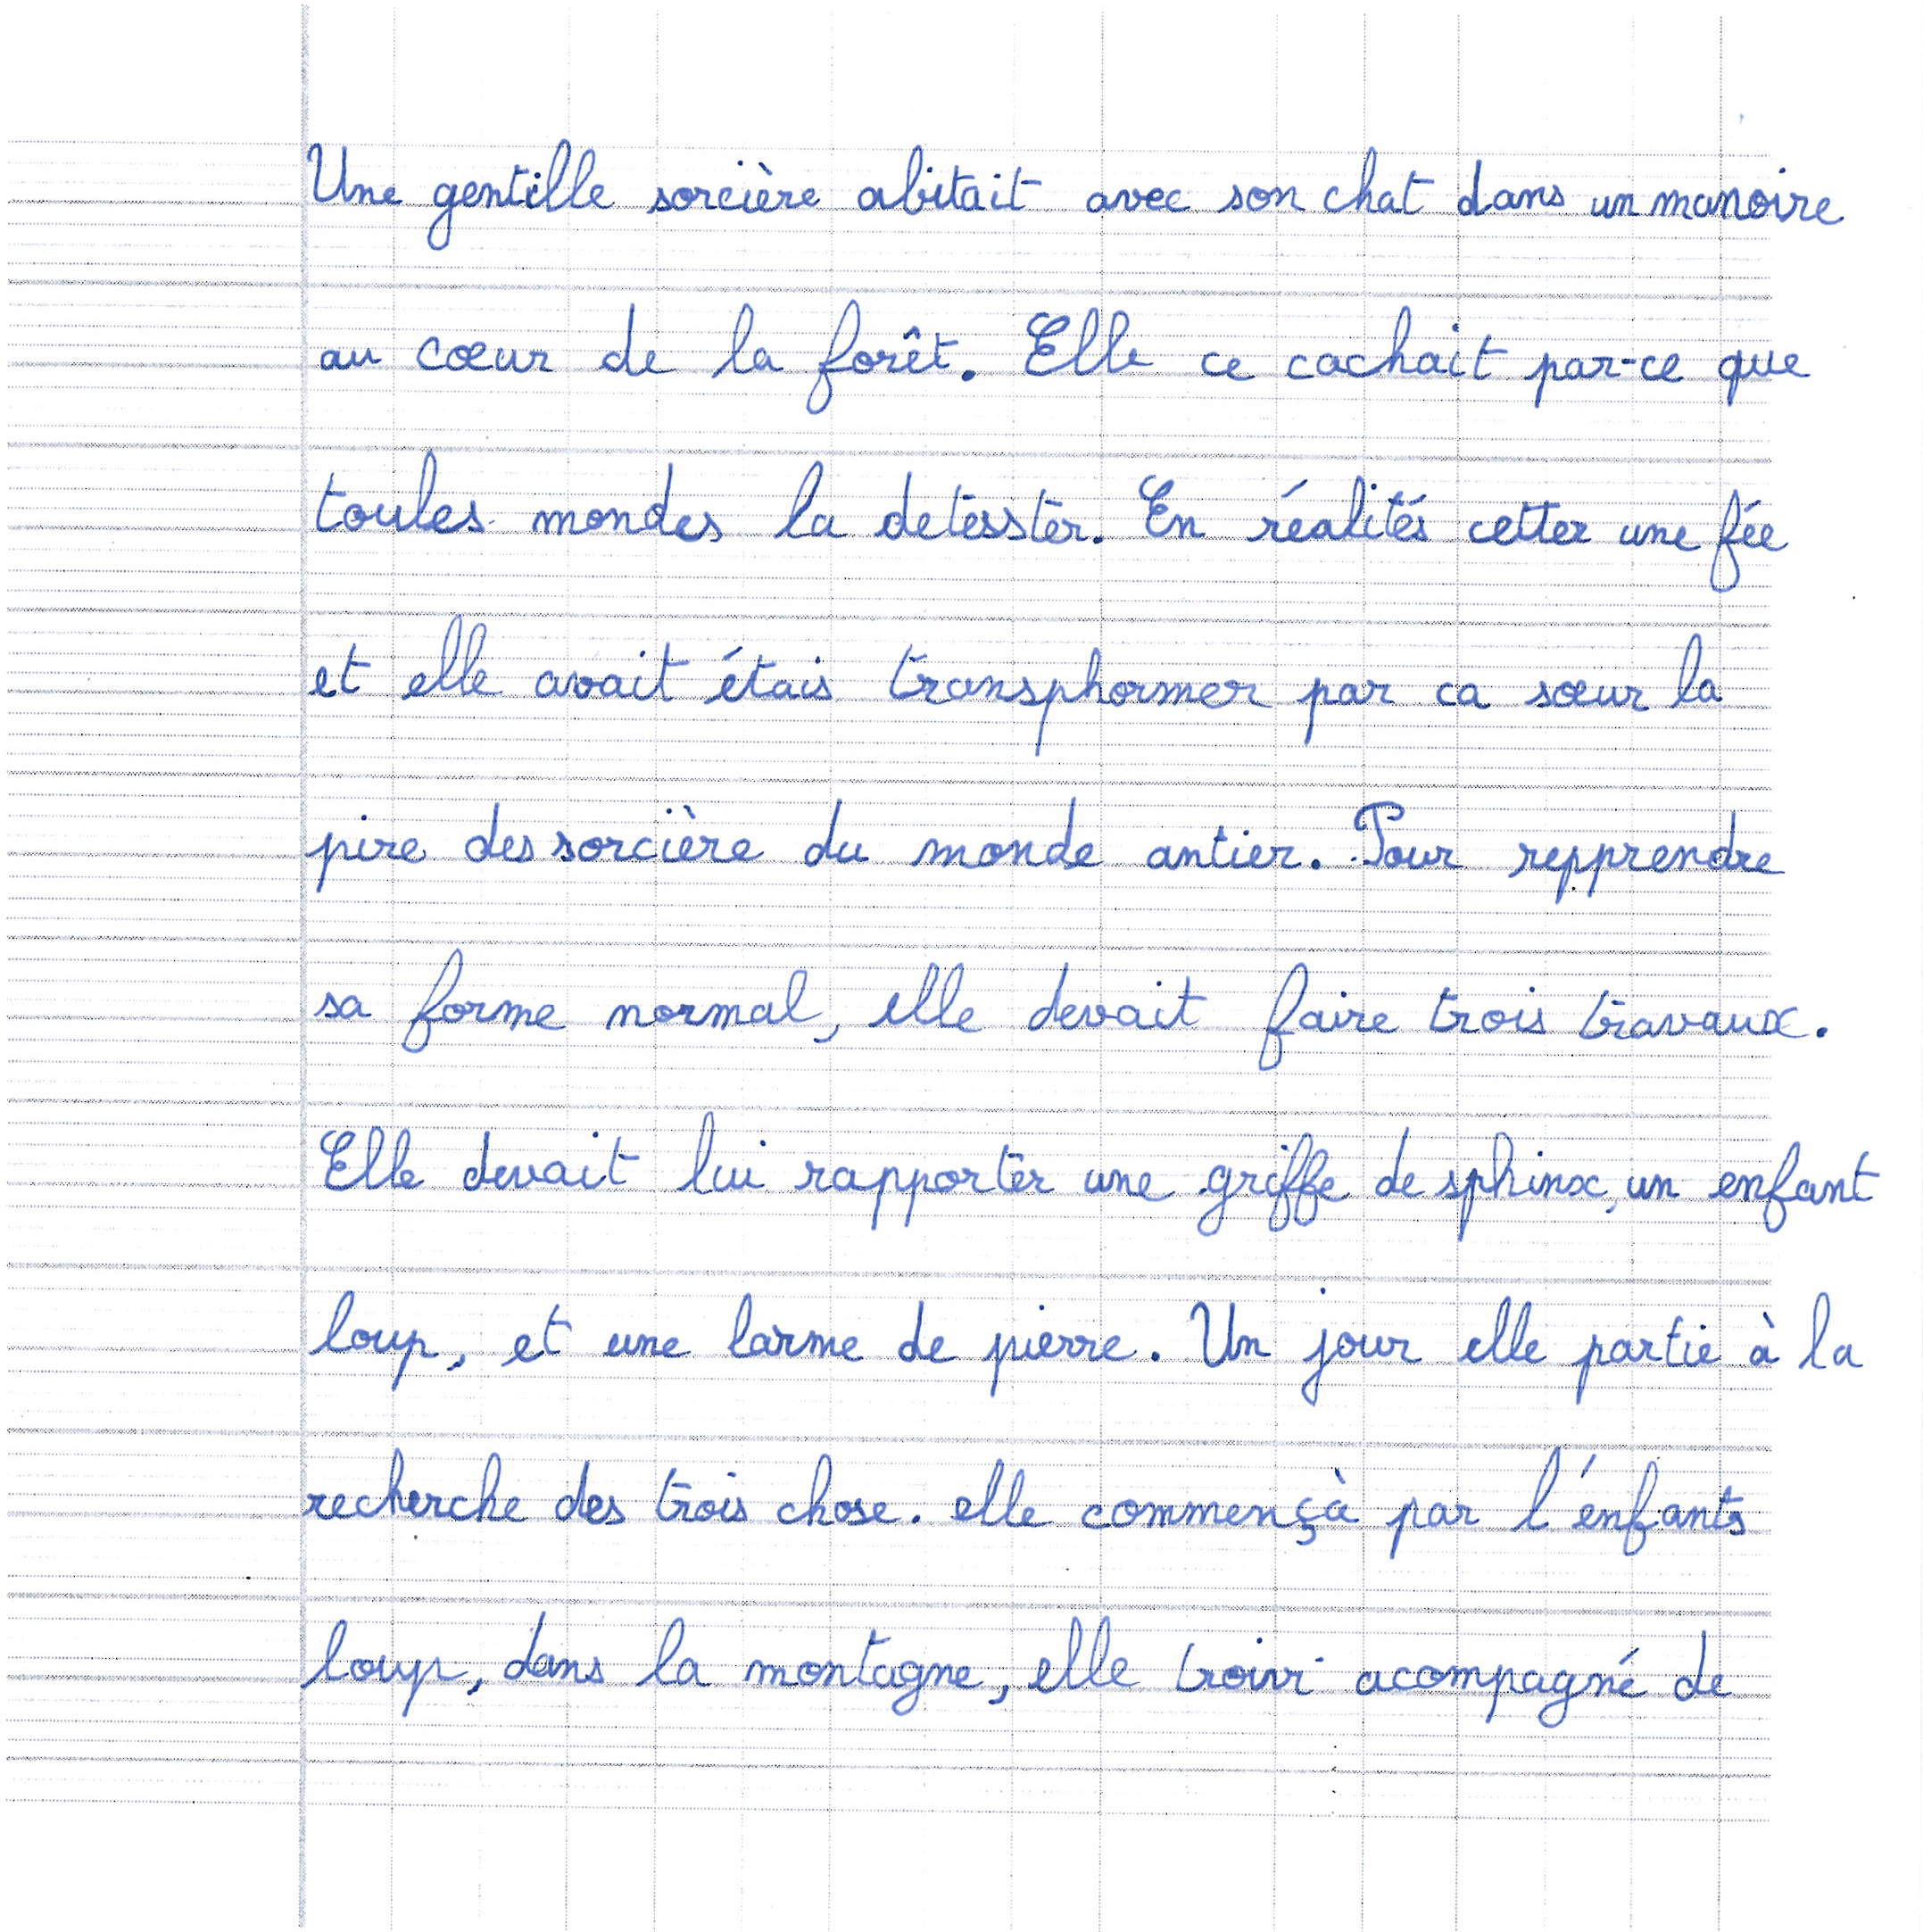 Une gentille sorcière abitait avec son chat dans un manoire
au cœur de la forêt. Elle ce cachait par-ce que
toules mondes la detesster. En réalités cetter une fée
et elle avait étais transphormer par ca sœur la
pire des sorcière du monde antier. Pour repprendre
sa forme normal, elle devait faire trois travaux.
Elle devait lui rapporter une griffe de sphinx, un enfant
loup, et une larme de pierre. Un jour elle partie à la
recherche des trois chose. elle commençà par l'énfants
loup, dans la montagne, elle acompagné de